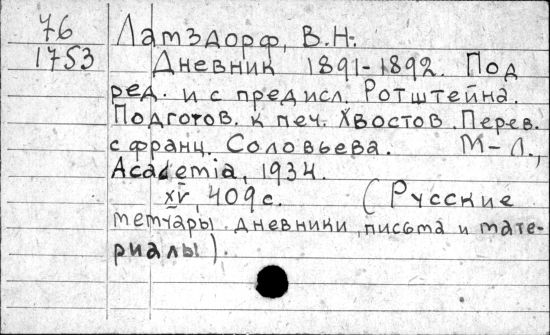 76 Ламздорф, В.Н.
1753 Дневник 1891-1892. Под
ред. и с предисл. Ротштейна.
Подготов. к печ. Хвостов. Перев.
с франц. Соловьева. М-Л.,
Academia, 1934.
XV, 409 с. (Русские
мемуары. дневники, письма и мате-
риалы).